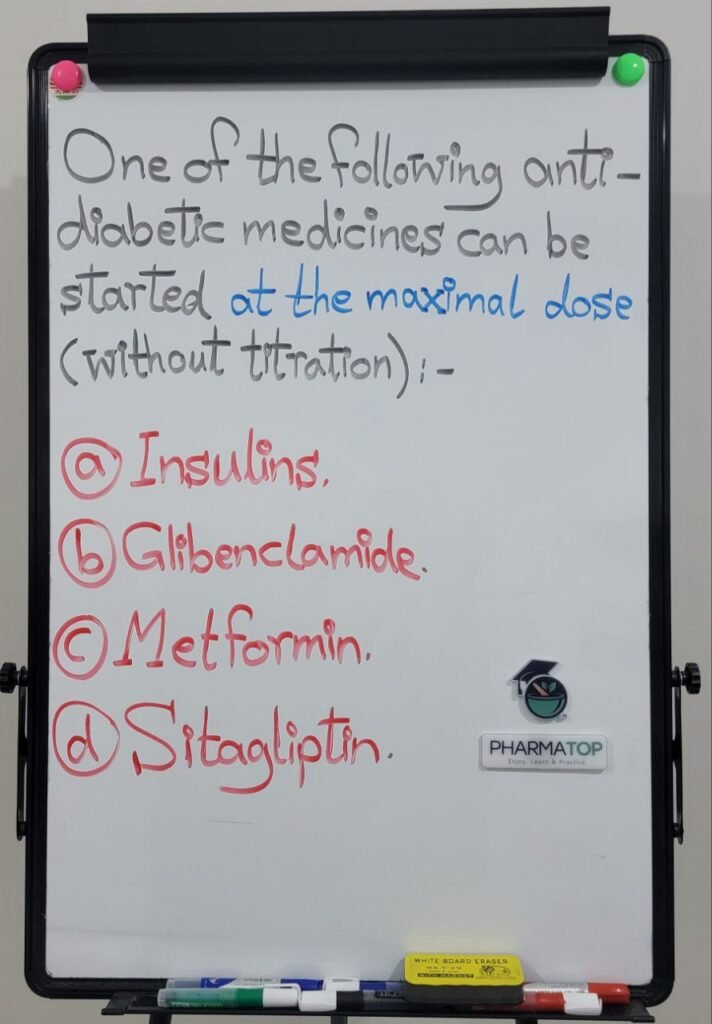 One of the following anti-
diabetic medicines can be
started at the maximal dose
(without titration):-
a Insulins.
b Glibenclamide.
c Metformin.
d Sitagliptin.
PHARMATOP
Enjoy, Learn & Practice
WHITE BOARD ERASER
WITH MAGNET